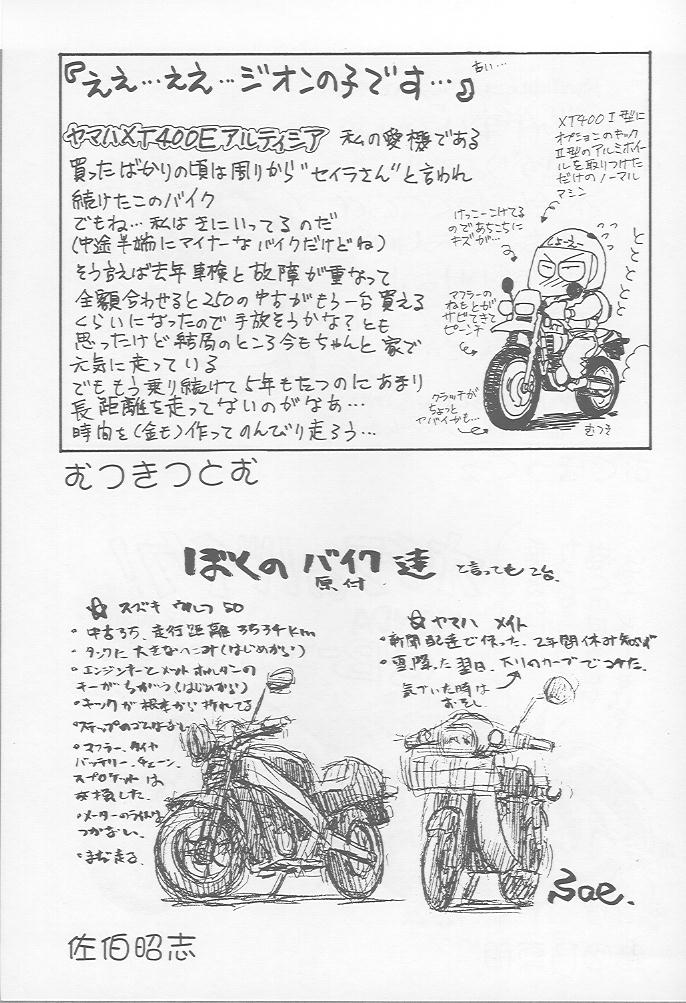 『ええ…ええ…ジオンの子です…』
古い…
ヤマハXT400Eアルティシア 私の愛機である
買ったばかりの頃は周りから"セイラさん"と言われ
続けたこのバイク
でもね…私はきにいってるのだ
(中途半端にマイナーなバイクだけどね)
そう言えば去年車検と故障が重なって
全額合わせると250の中古がもう一台買える
くらいになったので手放そうかな?とも
思ったけど結局のところ今もちゃんと家で
元気に走っている
でももう乗り続けて5年もたつのにあまり
長距離を走ってないのがなあ…
時間を(金も)作ってのんびり走ろう…
XT400Ⅰ型に
オプションのキック
Ⅱ型のアルミホイー
ルを取りつけた
だけのノーマル
マシン
けっこーこけてる
のであちこちに
キズが…
しょえー
トトトトトト
マフラーの
ねもとが
サビてきて
ピーンチ
クラッチが
ちょっと
ヤバイかも…
むつき
むつきつとむ
ぼくのバイク達 と言っても2台.
原付
☆ スズキ ウルフ50
・中古3.5. 走行距離3534km
・タンクに大きなへこみ(はじめから)
・エンジンキーとメットホルダーの
キーがちがう(はじめから)
・キックが根本から折れてる
・ステップのゴムはなし
・マフラー. タイヤ
バッテリー. チェーン.
スプロケットは
交換した.
・メーターのライトは
つかない.
・まだ走る.
☆ ヤマハ メイト
・新聞配達で使った. 2年間休み知らず
・雪降った翌日. 下りのカーブでコケた.
気づいた時は
おそし.
Sae.
佐伯昭志